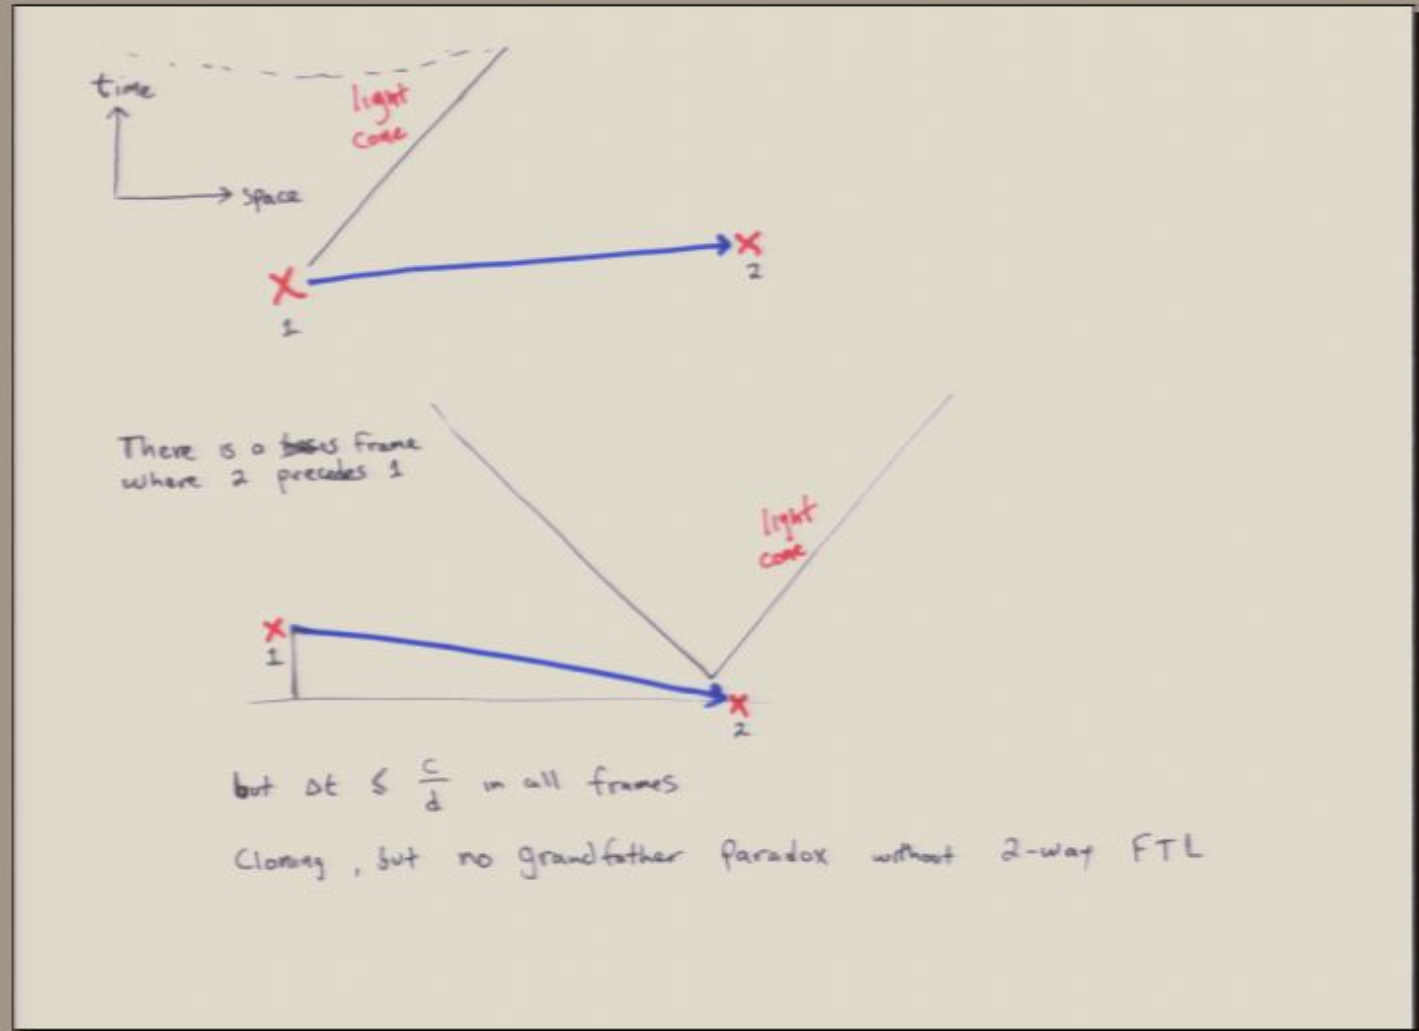 time
light
cone
space
1
2
There is a frame
where 2 precedes 1
light
cone
1
2
but Δt ≤ c/d in all frames
Cloning, but no grandfather paradox without 2-way FTL